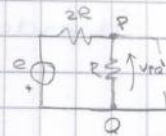 2R
P
e
R
VPQ
+
Q